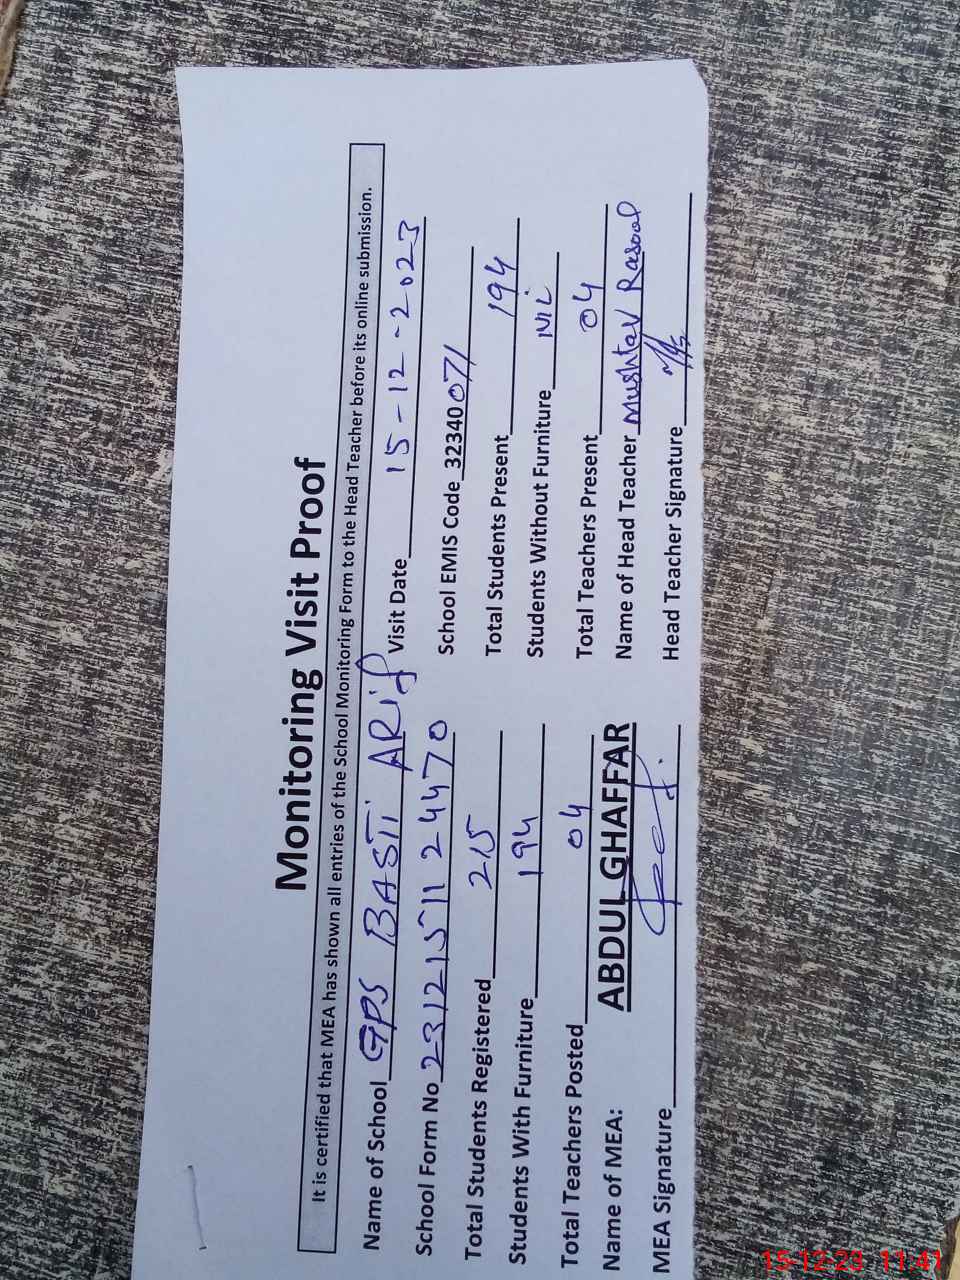 Monitoring Visit Proof
It is certified that MEA has shown all entries of the School Monitoring Form to the Head Teacher before its online submission.
Name of School GPS BASTI ARif Visit Date 15-12-2023
School Form No 2312151124470 School EMIS Code 32340071
Total Students Registered 215 Total Students Present 194
Students With Furniture 194 Students Without Furniture Nil
Total Teachers Posted 04 Total Teachers Present 04
Name of MEA: ABDUL GHAFFAR Name of Head Teacher Mushtaq Rasool
MEA Signature Head Teacher Signature
15-12-23 11:41